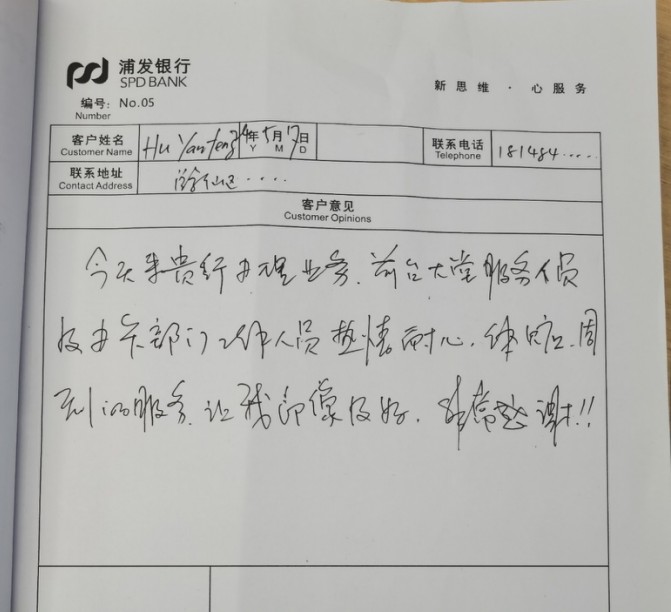 浦发银行
SPD BANK
新思维 · 心服务
编号: No.05
Number
客户姓名 Hu Yanfeng 24年5月17日 联系电话 181484.....
Customer Name Y M D Telephone
联系地址
Contact Address
客户意见
Customer Opinions
今天来贵行办理业务、前台大堂服务人员
及办卡部门工作人员热情耐心、体贴、周
到的服务、让我印像极好、非常感谢!!